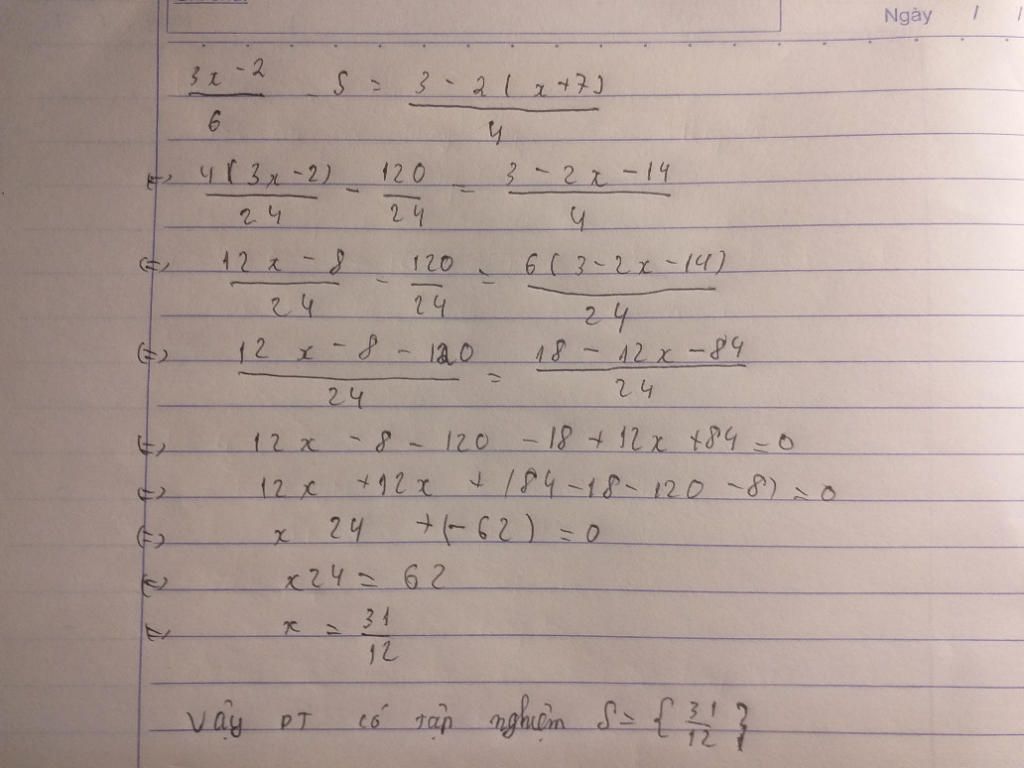 Ngày / /
3x - 2 / 6 - 5 = 3 - 2(x+7) / 4
(=) 4(3x-2) / 24 - 120 / 24 = 3 - 2x - 14 / 4
(=) 12x - 8 / 24 - 120 / 24 = 6(3-2x-14) / 24
(=) 12x - 8 - 120 / 24 = 18 - 12x - 84 / 24
(=) 12x - 8 - 120 - 18 + 12x + 84 = 0
(=) 12x + 12x + (84-18-120-8) = 0
(=) x 24 + (-62) = 0
(=) x24 = 62
(=) x = 31 / 12
Vậy PT có tập nghiệm S = {31 / 12}